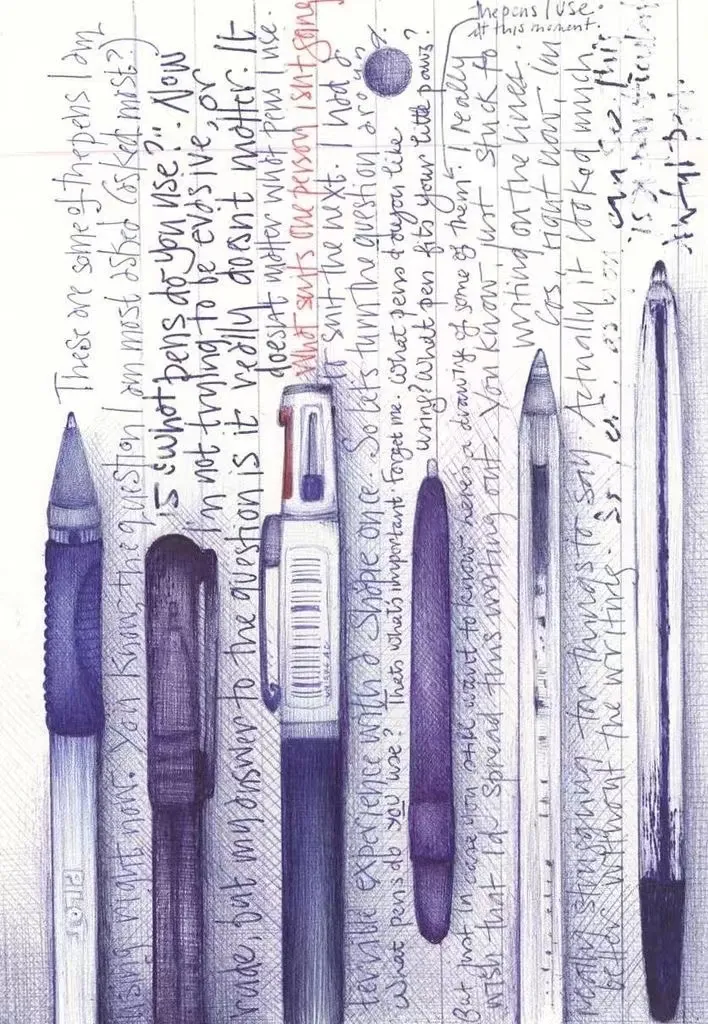 These are some of the pens I am
using right now. You know, the question I am most asked (asked most?)
is: "what pens do you use?". Now
I'm not trying to be evasive, or
rude, but my answer to the question is it really doesnt matter. It
doesnt matter what pens I use.
What suits one person isn't going
to suit the next. I had a
terrible experience with a Shapie once. So let's turn the question around.
What pens do you use? Thats whats important. Forget me. What pens do you like
using? What pen fits your little paws?
But just in case you still want to know heres a drawing of some of them. I really
wish that I'd spread this writing out. You know, just stuck to
writing on the lines.
Cos, right now, I'm
really struggling for things to say. Actually it looked much
better without the writing. can see this
is a
Awful pen.
The pens I use.
at this moment.
PILOT